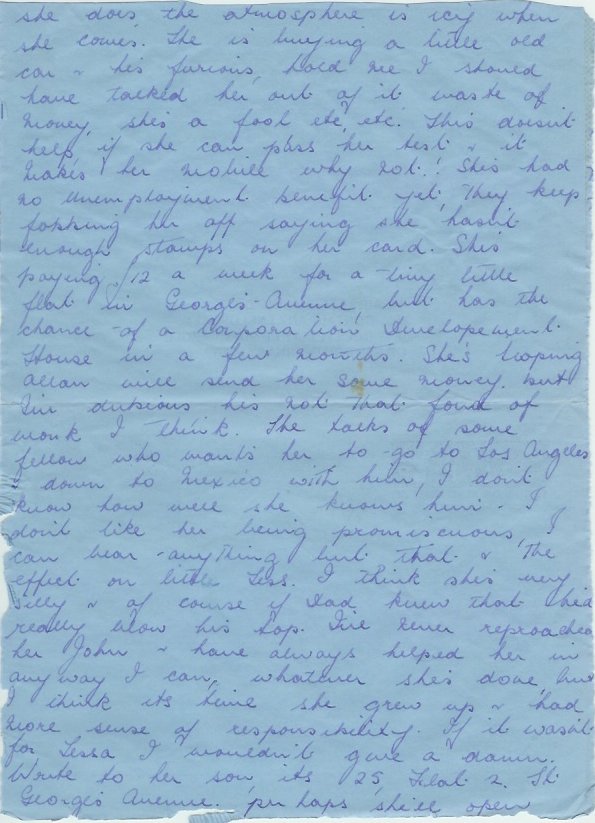 she does the atmosphere is icy when
she comes. She is buying a little old
car & his furious, told me I should
have talked her out of it waste of
money, she's a fool etc, etc. This doesn't
help, if she can pass her test & it
makes her mobile why not! She's had
no unemployment benefit yet, They keep
fobbing her off saying she hasn't
enough stamps on her card. She's
paying £12 a week for a tiny little
flat in George's Avenue, but has the
chance of a Corporation Developement
House in a few months. She's hoping
Allan will send her some money but
I'm dubious his not that fond of
work I think. She talks of some
fellow who wants her to go to Los Angeles
& down to Mexico with him, I don't
know how well she knows him. I
don't like her being promiscuous, I
can bear anything but that & the
effect on little Tess. I think she's very
silly & of course if Dad knew that he'd
really blow his top. I've never reproached
her John & have always helped her in
anyway I can, whatever she's done, but
I think its time she grew up & had
more sense of responsibility. If it wasn't
for Tessa I wouldn't give a damn.
Write to her son its 25, Flat 2. St.
George's Avenue. perhaps she'll open